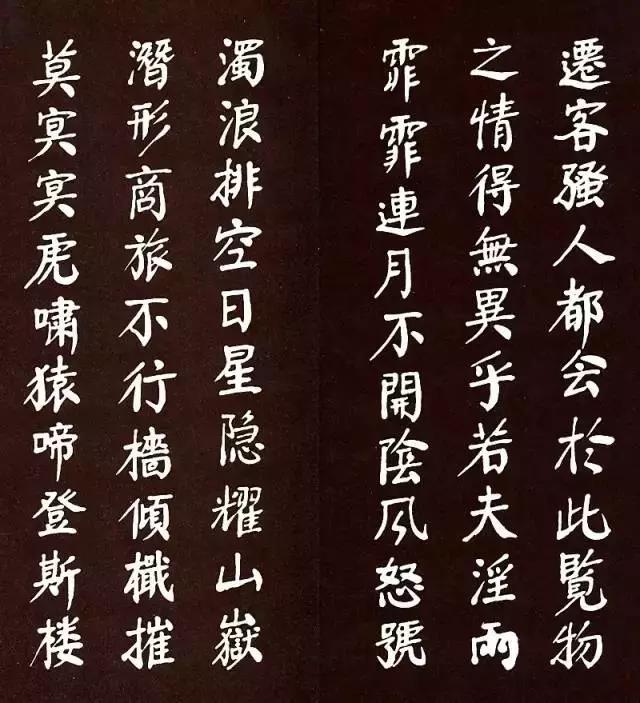 遷客騷人都会於此覽物
之情得無異乎若夫淫雨
霏霏連月不開陰风怒號
濁浪排空日星隐耀山嶽
潛形商旅不行檣傾檝摧
莫冥冥虎嘯猿啼登斯楼